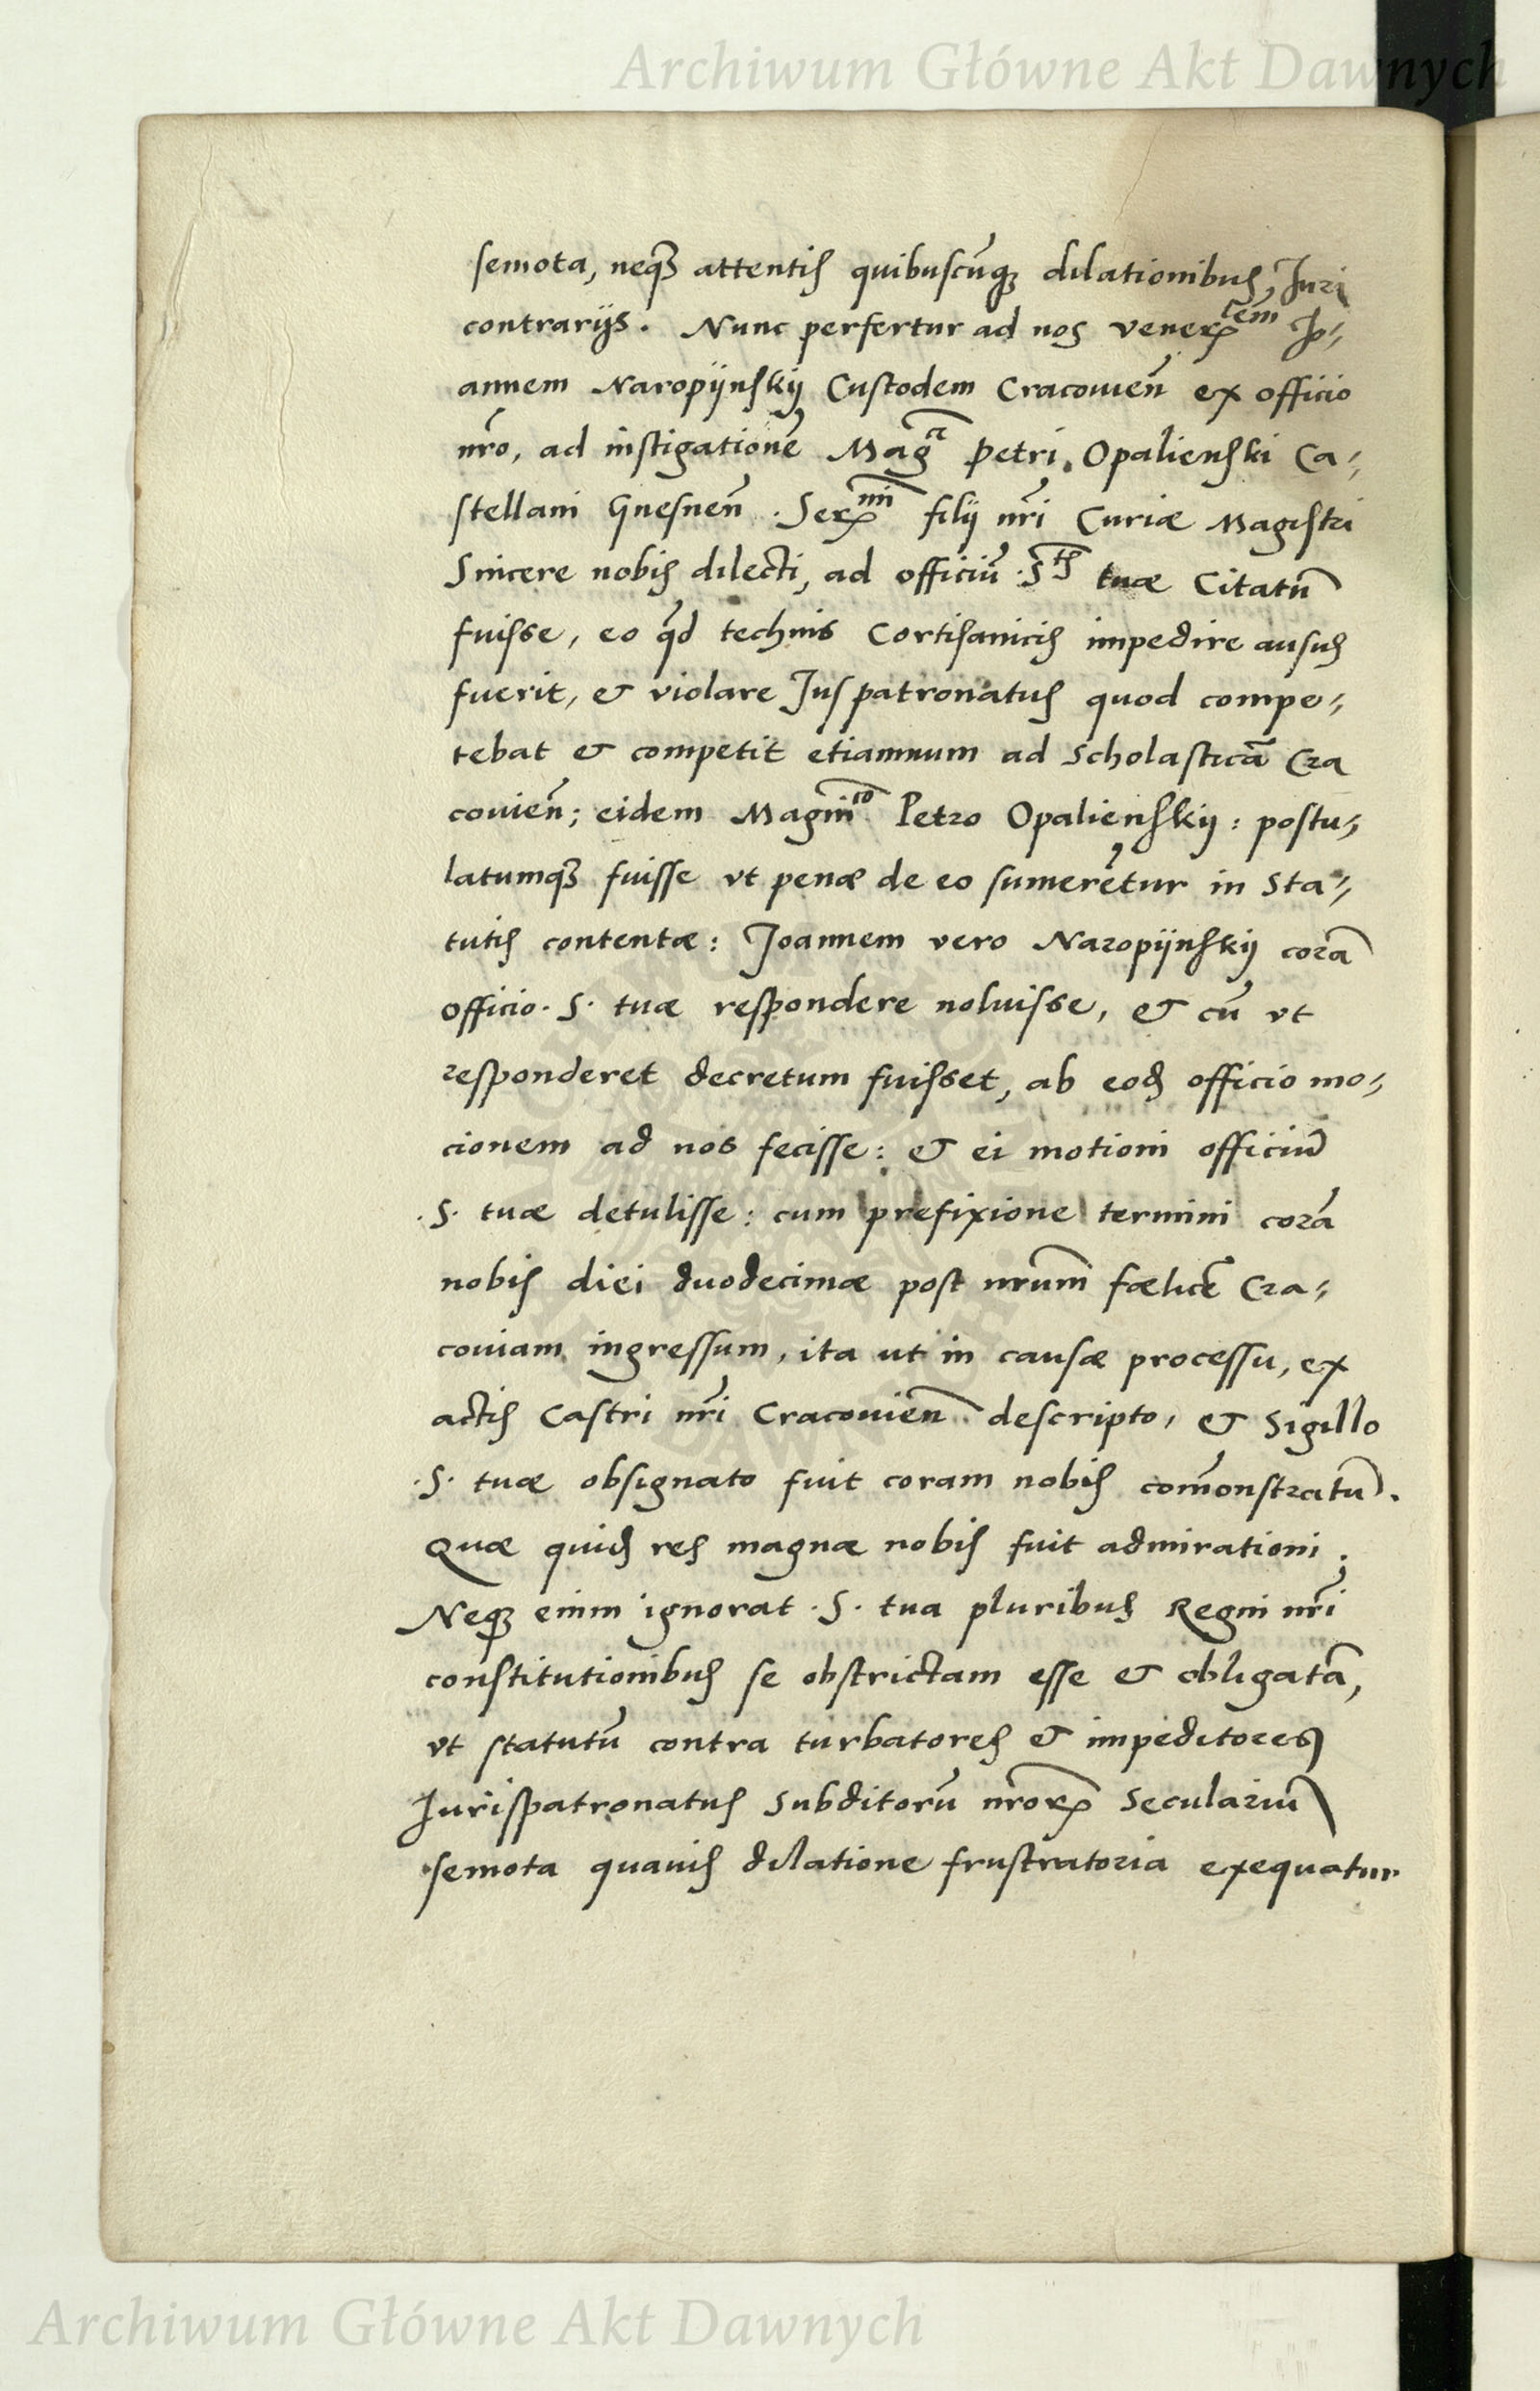 Archiwum Główne Akt Dawnych
semota, neqȝ attentis quibuscūqȝ dilationibus, Juri
contrarijs. Nunc perfertur ad nos venerꝫ̃lem Jo-
annem Naropijnskij Custodem Cracovieñ ex officio
nr̃o, ad instigationẽ Mag̃ci Petri Opalienski Ca-
stellani Gnesneñ. Serꝫ̃mi filij nr̃i Curiæ Magistri
Sincere nobis dilecti, ad officiũ .S̃tis tuæ Citatũ
fuisse, eo qd̃ technis Cortisanicis impedire ausus
fuerit, & violare Juspatronatus quod compe-
tebat & competit etiamnum ad Scholasticã Cra
covieñ; eidem Magñico Petro Opalienskij: postu-
latumqȝ fuisse vt penæ de eo sumerẽtur in Sta-
tutis contentæ: Joannem vero Naropijnskij corã
officio. S. tuæ respondere noluisse, & cũ vt
responderet decretum fuisset, ab eod̃ officio mo-
cionem ad nos fecisse: & ei motioni officiũ
.S. tuæ detulisse: cum prefixione termini corã
nobis diei duodecimæ post nrum̃ fælicẽ Cra-
coviam ingressum, ita ut in causæ processu, ex
actis Castri nr̃i Cracovieñ. descripto, & Sigillo
.S. tuæ obsignato fuit coram nobis com̃onstratũ.
Quæ quid̃ res magnæ nobis fuit admirationi.
Neqȝ enim ignorat .S. tua pluribus Regni nr̃i
constitutionibus se obstrictam esse & obligatã,
vt statutũ contra turbatores & impeditores
Jurispatronatus Subditorũ nr̃orꝝ Seculariũ
semota quavis dilatione frustratoria exequatur
Archiwum Główne Akt Dawnych